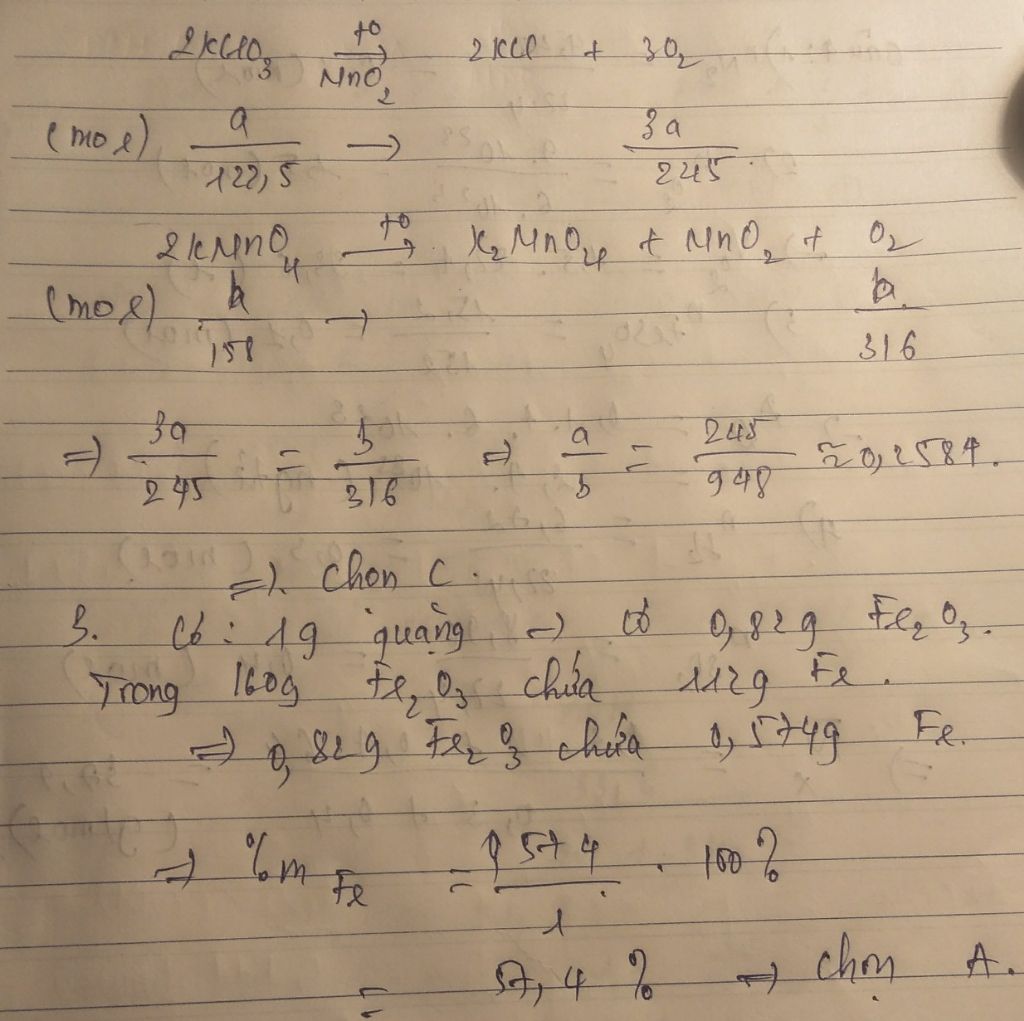 2KClO₃ →(t°, MnO₂) 2KCl + 3O₂
(mol) a/122,5 → 3a/245.
2KMnO₄ →(t°) K₂MnO₄ + MnO₂ + O₂
(mol) b/158 → b/316
⇒ 3a/245 = b/316 ⇒ a/b = 245/948 ≈ 0,2584.
⇒. Chọn C.
3. Có: 1g quặng → có 0,82g Fe₂O₃.
Trong 160g Fe₂O₃ chứa 112g Fe.
⇒ 0,82g Fe₂O₃ chứa 0,574g Fe.
⇒ %m Fe = 0,574/1 . 100%
= 57,4% ⇒ chọn A.